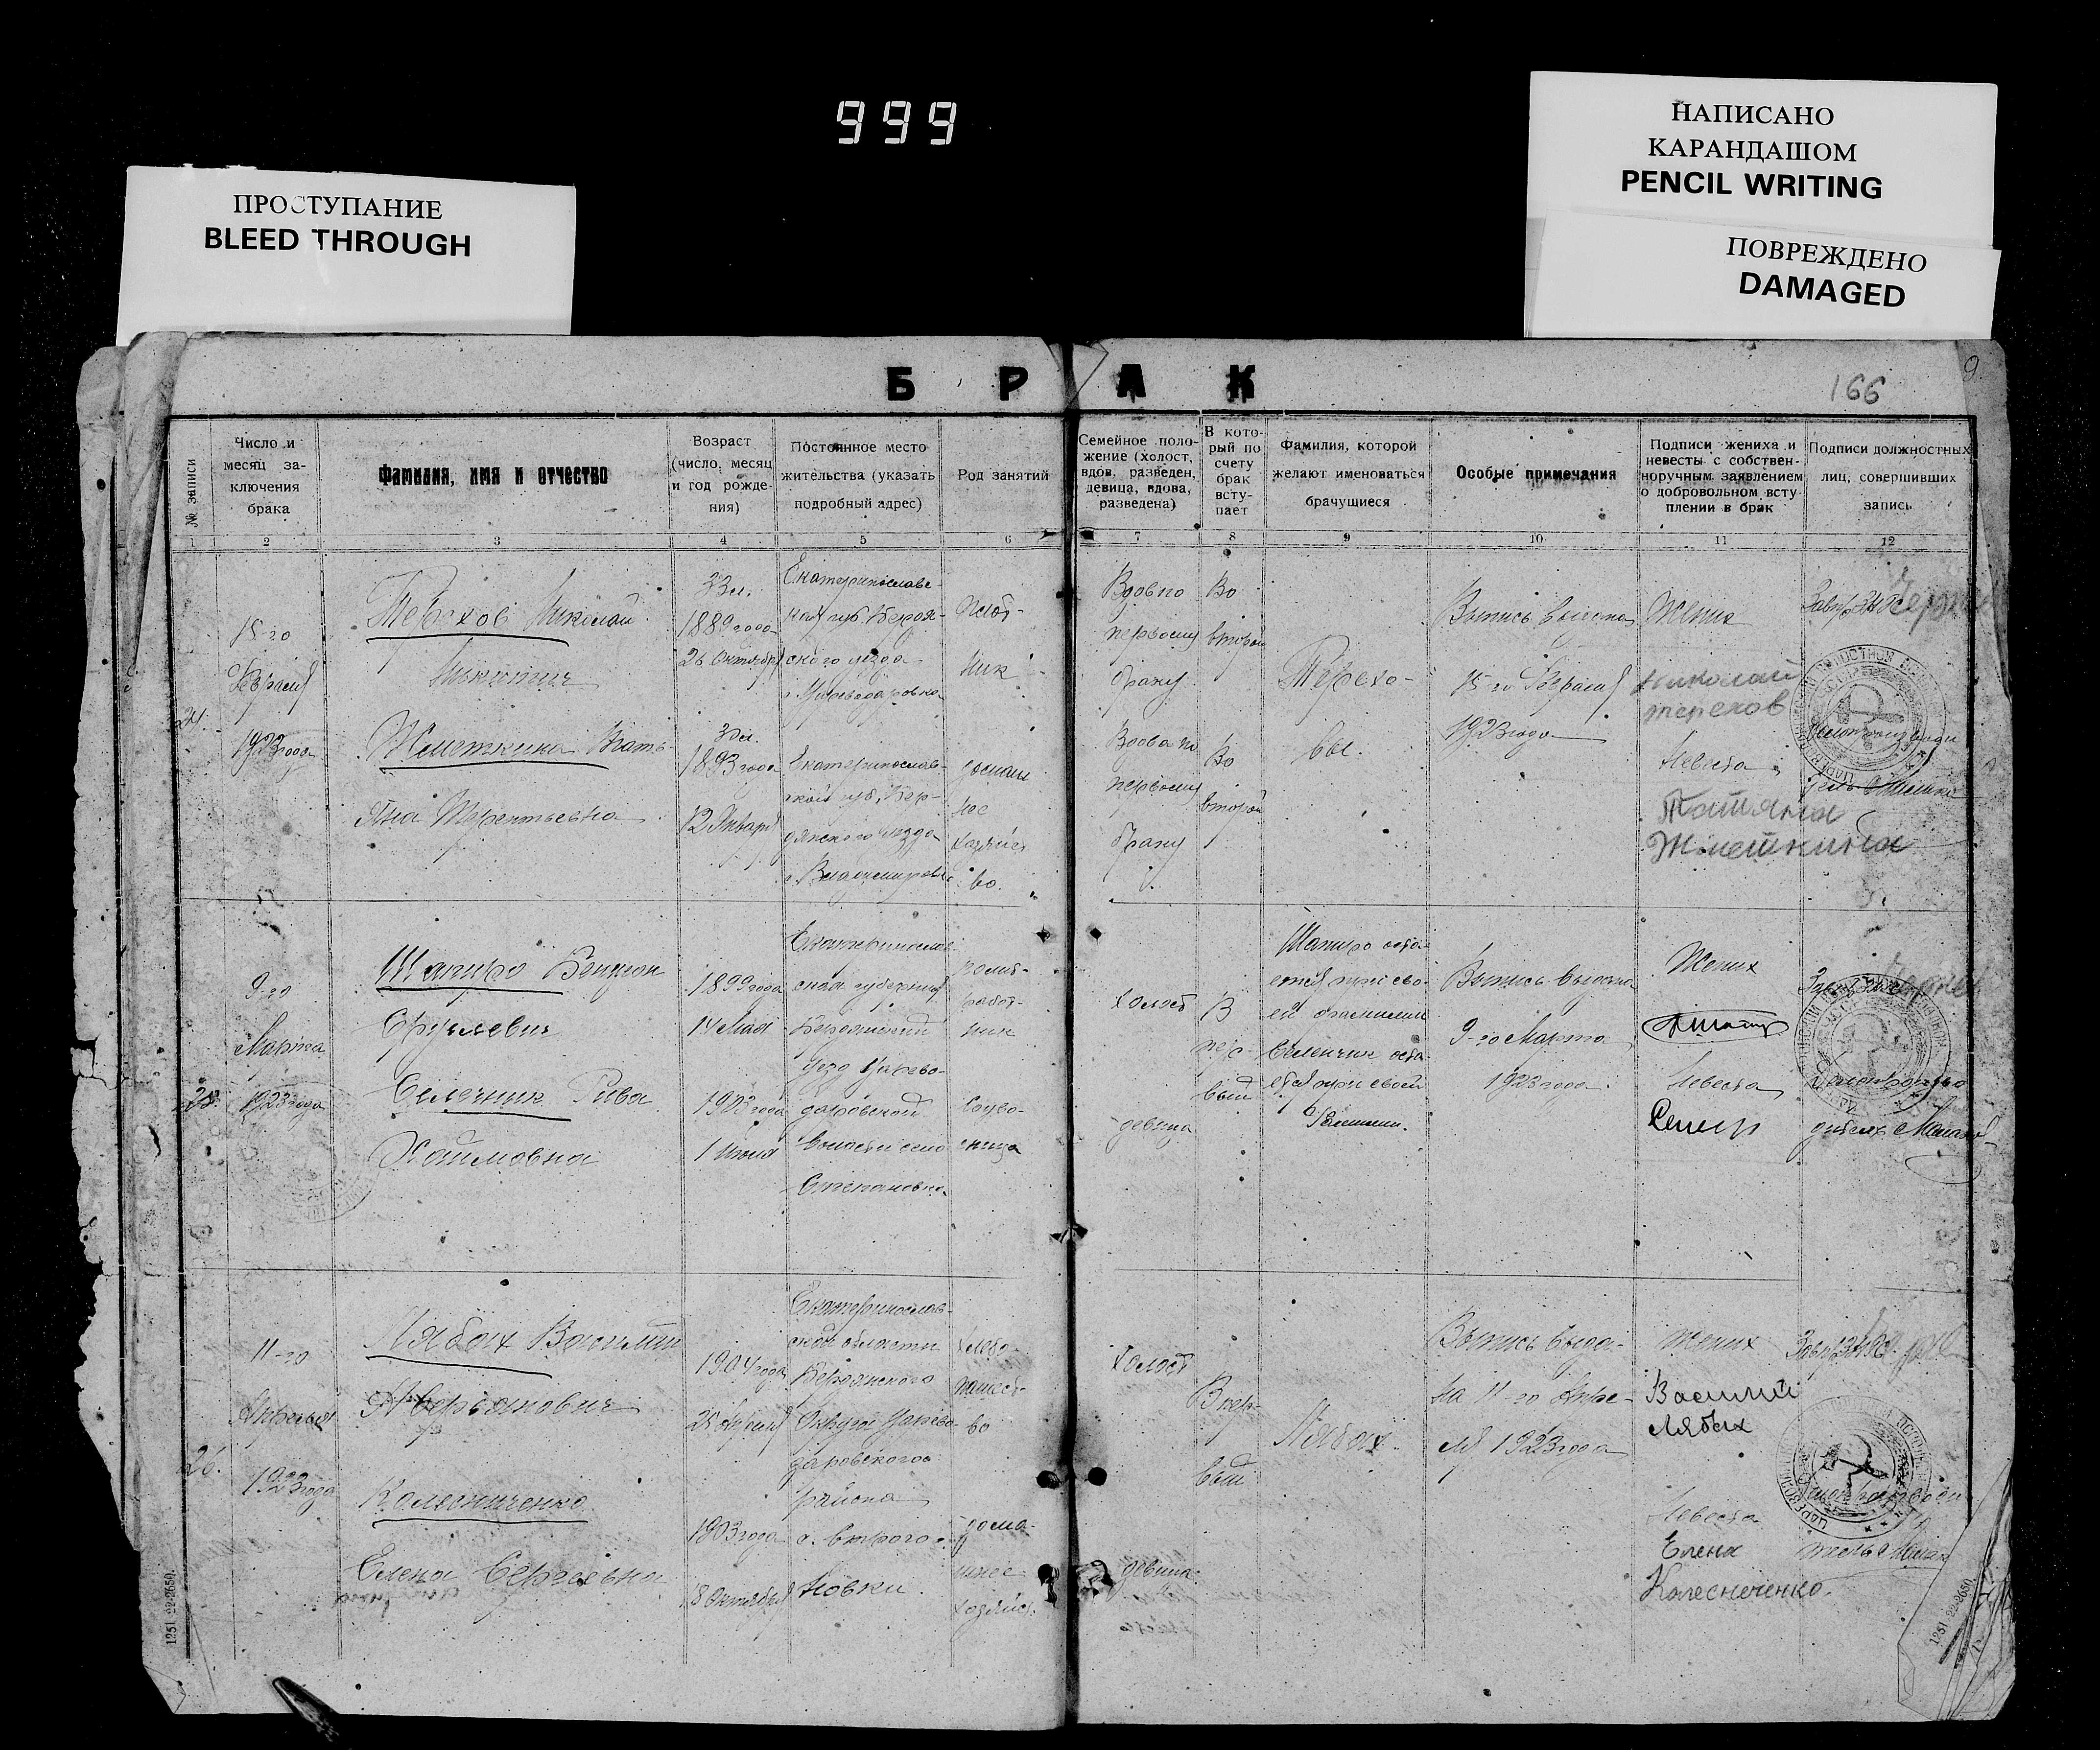 999
НАПИСАНО
КАРАНДАШОМ
PENCIL WRITING
ПОВРЕЖДЕНО
DAMAGED
ПРОСТУПАНИЕ
BLEED THROUGH
БРАК
166
9.
№ записи
Число и
месяц за-
ключения
брака
Фамилия, имя и отчество
Возраст
(число, месяц
и год рожде-
ния)
Постоянное место
жительства (указать
подробный адрес)
Род занятий
Семейное поло-
жение (холост,
вдов, разведен,
девица, вдова,
разведена)
В кото-
рый по
счету
брак
всту-
пает
Фамилия, которой
желают именоваться
брачущиеся
Особые примечания
Подписи жениха и
невесты с собствен-
норучным заявлением
о добровольном всту-
плении в брак
Подписи должностных
лиц, совершивших
запись
1 2 3 4 5 6 7 8 9 10 11 12
24.
15 го
Февраля
1923 года
Терехов Николай
Никитич
Жметкина Тать-
яна Терентьевна
33 л.
1889 года
26 Октября
30 л.
1893 года
12 Января
Екатеринославс-
кая губ. Бердян-
ского уезда
с. Цареводаровка
Екатеринослав-
ской губ. Бер-
дянского уезда
с. Владимировка
Плот-
ник
домаш
нее
хозяйст
во.
Вдов по
первому
браку
Вдова по
первому
браку
Во
второй
Во
второй
Терехо-
вы.
Выпись выдана
15 го Февраля
1923 года
Жених
Николай
терехов
Невеста
Татяна
Жметкина
25.
9 го
Марта
1923 года
Шапиро Бенцион
Сруль­евич
Селечник Рива
Хаймовна
1899 года
14 Мая
1903 года
1 Июня
Екатеринослав-
ская губерния
Бердянский
уезд Царево-
даровской
волости село
Степановка
полит-
работ-
ник
Холост
девица
В
пер-
вый
Шапиро оста-
ется при сво-
ей фамилии
Селечник оста-
ется при своей
фамилии.
Выпись выдана
9-го Марта
1923 года.
Жених
Невеста
26.
11-го
Апреля
1923 года
Лябах Василий
Аверьянович
Колесниченко
Елена Сергеевна
1904 года
25 Апреля
1903 года
18 Октября
Екатеринослав-
ской области
Бердянского
Округа Царево-
даровского
района
Хлебо-
пашест-
во
дома-
шнее
хозяйст.
Холост
девица
В пер-
вый
Лябах.
Выпись выда-
на 11 го Апре-
ля 1923 года
Жених
Василий
Лябах
Невеста
Елена
Колесниченко.
1251 22-2650.
1251 22-2650